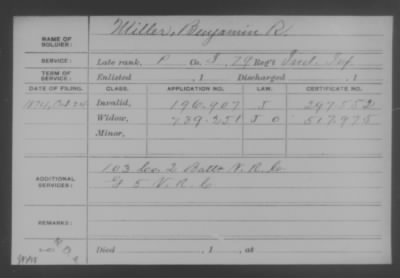 Miller, Benjamin R.
NAME OF SOLDIER:
SERVICE: Late rank, P Co. I, 29 Reg't Ind. Inf.
TERM OF SERVICE: Enlisted , 1 Discharged , 1
DATE OF FILING. CLASS. APPLICATION NO. LAW. CERTIFICATE NO.
Invalid, 196.907 297.552
Widow, 739.251 517.975
Minor,
ADDITIONAL SERVICES:
103 Co. 2 Batt V. R. C.
G 5 V. R. C.
REMARKS:
Died , 1 , at